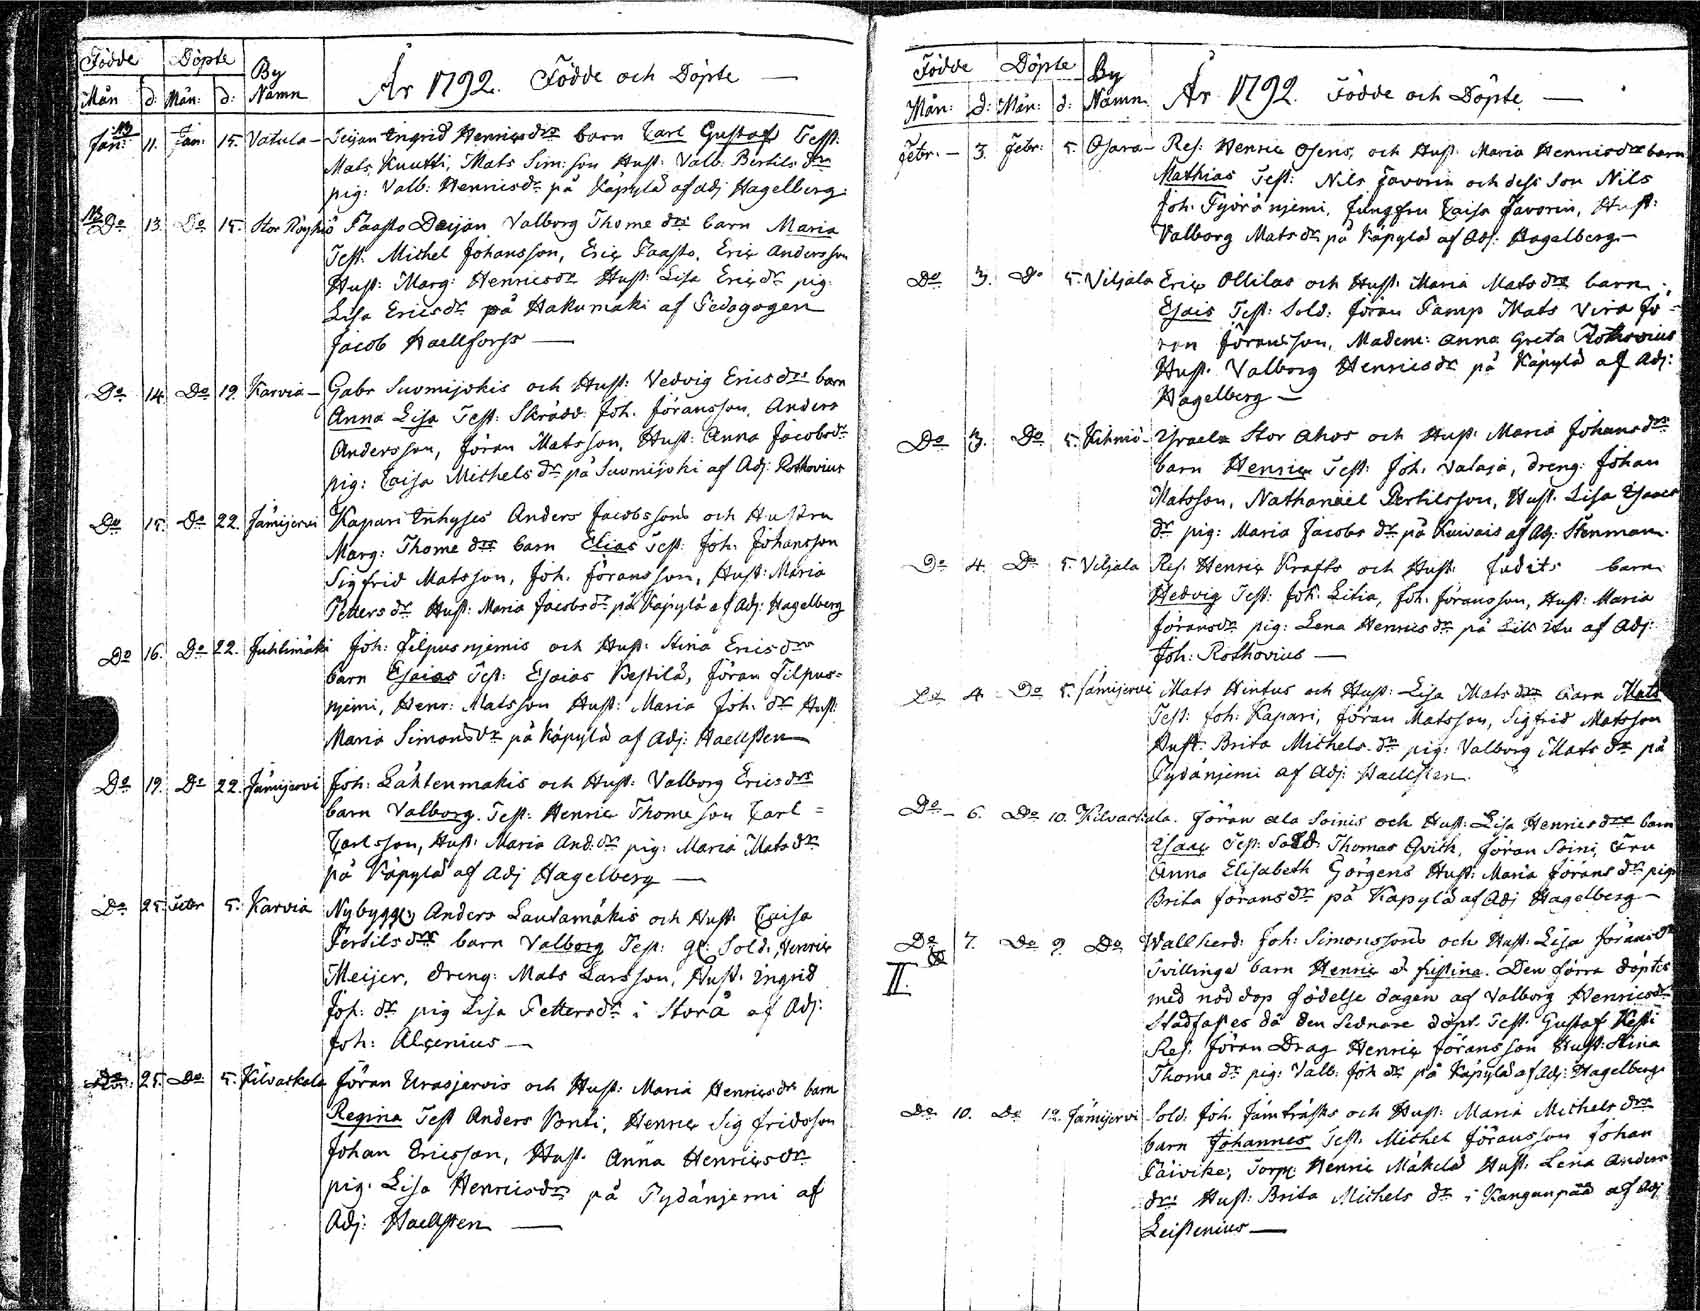 Födde Döpte By År 1792. Födde och Döpte —
Mån d: Mån: d: Namn
Jan: 11. Jan: 15. Vatula — Ingrid Henricsdrs barn Carl Gustaf Test:
Mats Knutti, Mats Sim: son Hust: Valb. Bertils dr
pig: Valb: Henricsdr på Käpylä af adj Hagelberg.
Do 13. Do 15. Stor Röyhiö Paasto Valborg Thome drs barn Maria
Test. Michel Johansson, Eric Paasto, Eric Andersson
Hust: Marg: Henricsdr Hust: Lisa Ericsdr pig:
Lisa Ericsdr på Hakumäki af Pedagogen
Jacob Haellfors —
Do 14 Do 19. Karvia — Gabr Suomijokis och Hust: Hedvig Ericsdrs barn
Anna Lisa Test: Skrädd: Joh. Jöransson, Anders
Andersson, Jöran Matsson, Hust: Anna Jacobsdr
pig: Caisa Michelsdr på Suomijoki af Adj: Rothovius
Do 15. Do 22. Jämijervi Kapari Inhyses Anders Jacobssons och Hustru
Marg: Thome drs barn Elias Test: Joh. Johansson
Sigfrid Matsson, Joh. Jöransson, Hust: Maria
Petters dr Hust: Maria Jacobsdr på Käpylä af Adj: Hagelberg
Do 16. Do 22. Juhtimäki Joh: Filpusnjemis och Hust: Stina Ericsdrs
barn Esaias Test: Esaias Kestilä, Jöran Filpus=
njemi, Henr: Matsson Hust: Maria Joh. dr Hust:
Maria Simonsdr på Käpylä af Adj: Haellsten
Do 19. Do 22. Jämijervi Joh: Lähtenmäkis och Hust: Valborg Ericsdrs
barn Valborg. Test: Henric Thomeson Carl =
Carlsson, Hust: Maria And.dr pig: Maria Matsdr
på Käpylä af Adj Hagelberg —
Do 25. Febr 5. Karvia Nybygg: Anders Lautamäkis och Hust: Caisa
Bertilsdrs barn Valborg Test: gl: Sold: Henric
Meijer, dreng: Mats Larsson, Hust: Ingrid
Joh: dr pig Lisa Pettersdr i Storå af Adj:
Joh: Alcenius —
Do 25. Do 5. Kilvaskala Jöran Urasjervis och Hust: Maria Henricsdrs barn
Regina Test Anders Ponti, Henric Sigfridsson
Johan Ericsson, Hust: Anna Henricsdr
pig. Lisa Henricsdr på Pydänjemi af
Adj: Haellsten —
Födde Döpte By År 1792. Födde och Döpte —
Mån: d: Mån: d: Namn
Febr. — 3. Febr: 5. Osara — Res: Henric Osaris, och Hust: Maria Henricsdrs barn
Mathias Test: Nils Favorin och dess Son Nils
Joh: Pyöränjemi, Jungfru Caisa Favorin, Hust:
Valborg Matsdr på Käpylä af Adj: Hagelberg —
Do 3. Do 5. Viljala Eric Ollilas och Hust: Maria Matsdrs barn
Esais Test: Sold: Jöran Pamp Mats Vira Jö=
ran Jöransson, Madem: Anna Greta Rothovius
Hust: Valborg Henricsdr på Käpylä af Adj:
Hagelberg —
Do 3. Do 5. Kihniö Ysraels Stor Ahos och Hust: Maria Johansdrs
barn Henric Test: Joh: Valaja, dreng: Johan
Matsson, Nathanael Bertilsson, Hust: Lisa Ysaacs
dr pig: Maria Jacobs dr på Kuivais af Adj: Stenman.
Do 4. Do 5. Viljala Res: Henric Krafts och Hust: Judits barn
Hedvig Test: Joh: Litia, Joh: Jöransson, Hust: Maria
Jöransdr pig: Lena Henricsdr på af Adj:
Joh: Rothovius —
Do 4. Do 5. Jämijervi Mats Hintus och Hust: Lisa Matsdrs barn Mats
Test: Joh: Kapari, Jöran Matsson, Sigfrid Matsson
Hust: Brita Michels. dr pig: Valborg Mats dr på
Pydänjemi af Adj: Haellsten.
Do — 6. Do 10. Kilvaskala. Jöran Ala Soinis och Hust: Lisa Henricsdrs barn
Isaac Test: Sold: Thomas Qvick, Jöran Soini, Fru
Anna Elisabeth Görgens Hust: Maria Jörans dr pig:
Brita Jöransdr på Käpylä af Adj Hagelberg —
Do 7. Do 9. Do Wallherd: Joh: Simonssons och Hust: Lisa Jöransdr
II. Tvillinge barn Henric & Justina. Den förra döptes
med nöddop födelse dagen af Valborg Henricsdr
Stadfastes då den Sednare döpt. Test: Gustaf Kesti
Res: Jöran Drag Henric Jöransson Hust: Stina
Thome dr pig: Valb: Joh dr på Käpylä af Adj: Hagelberg
Do 10. Do 12. Jämijervi Sold: Joh: Jämträsks och Hust: Maria Michelsdrs
barn Johannes Test: Michel Jöransson Johan
Päivike, Torp: Henric Mäkelä Hust: Lena Anders
dr: Hust: Brita Michels dr i Kangunpää af Adj
Leistenius —